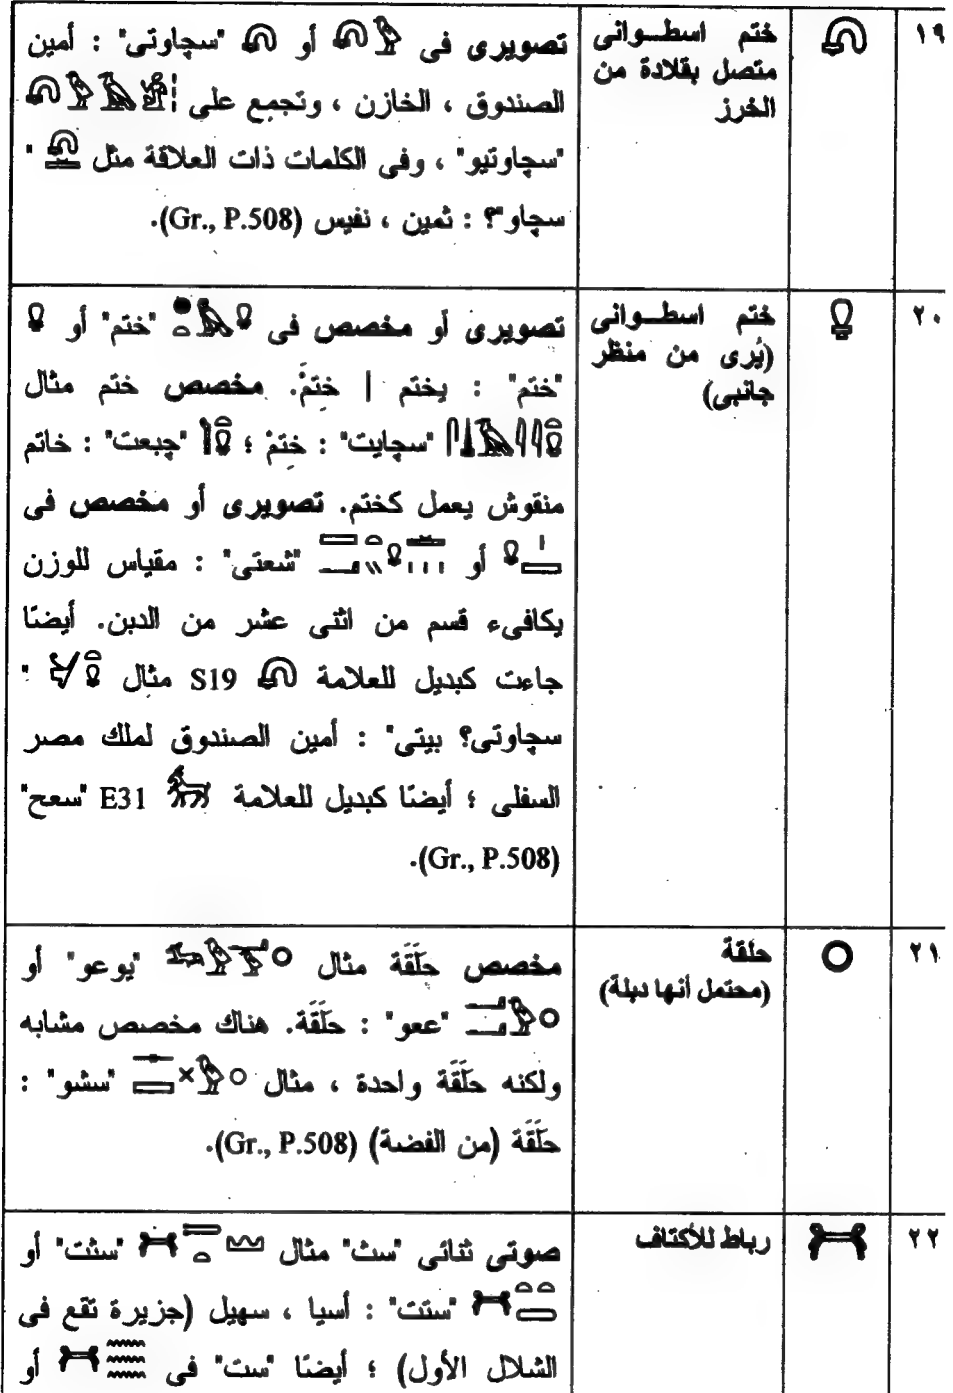 ١٩
ختم اسطــوانى
متصل بقلادة من
الخرز
تصويرى فى أو "سچاوتى" : أمين
الصندوق ، الخازن ، وتجمع على
"سچاوتيو" ، وفى الكلمات ذات العلاقة مثل "
سچاو"؟ : ثمين ، نفيس (Gr., P.508).
٢٠
ختم اسطــوانى
(يُرى من منظر
جانبى)
تصويرى أو مخصص فى "ختم" أو
"ختم" : يختم | ختمْ. مخصص ختم مثال
"سچايت" : ختمْ ؛ "چبعت" : خاتم
منقوش يعمل كختم. تصويرى أو مخصص فى
أو "شعتى" : مقياس للوزن
يكافىء قسم من اثنى عشر من الدبن. أيضًا
جاءت كبديل للعلامة S19 مثال "
سچاوتى؟ بيتى" : أمين الصندوق لملك مصر
السفلى ؛ أيضًا كبديل للعلامة E31 "سعح"
(Gr., P.508).
٢١
حلقة
(محتمل أنها دبلة)
مخصص حَلَقَة مثال "يوعو" أو
"ععو" : حَلَقَة. هناك مخصص مشابه
ولكنه حَلَقَة واحدة ، مثال "سشو" :
حَلَقَة (من الفضة) (Gr., P.508).
٢٢
رباط للأكتاف
صوتى ثنائى "سث" مثال "سثت" أو
"ستت" : أسيا ، سهيل (جزيرة تقع فى
الشلال الأول) ؛ أيضًا "ست" فى أو